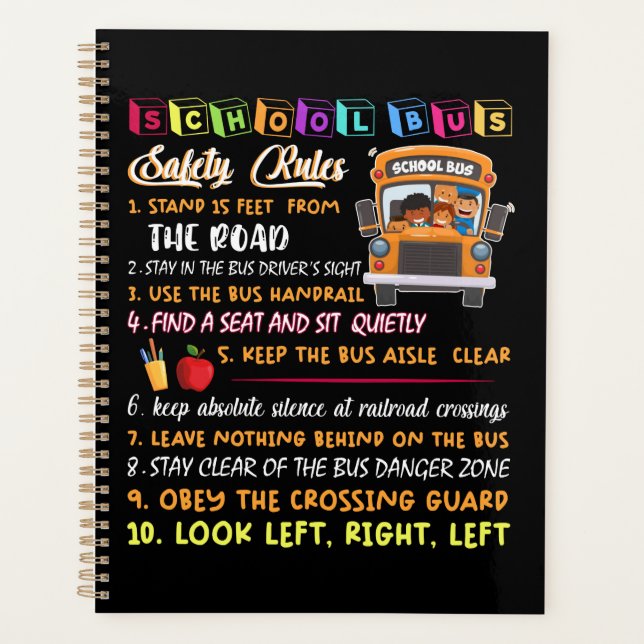 SCHOOL BUS
Safety Rules
SCHOOL BUS
1. STAND 15 FEET FROM
THE ROAD
2. STAY IN THE BUS DRIVER'S SIGHT
3. USE THE BUS HANDRAIL
4. FIND A SEAT AND SIT QUIETLY
5. KEEP THE BUS AISLE CLEAR
6. keep absolute silence at railroad crossings
7. LEAVE NOTHING BEHIND ON THE BUS
8. STAY CLEAR OF THE BUS DANGER ZONE
9. OBEY THE CROSSING GUARD
10. LOOK LEFT, RIGHT, LEFT